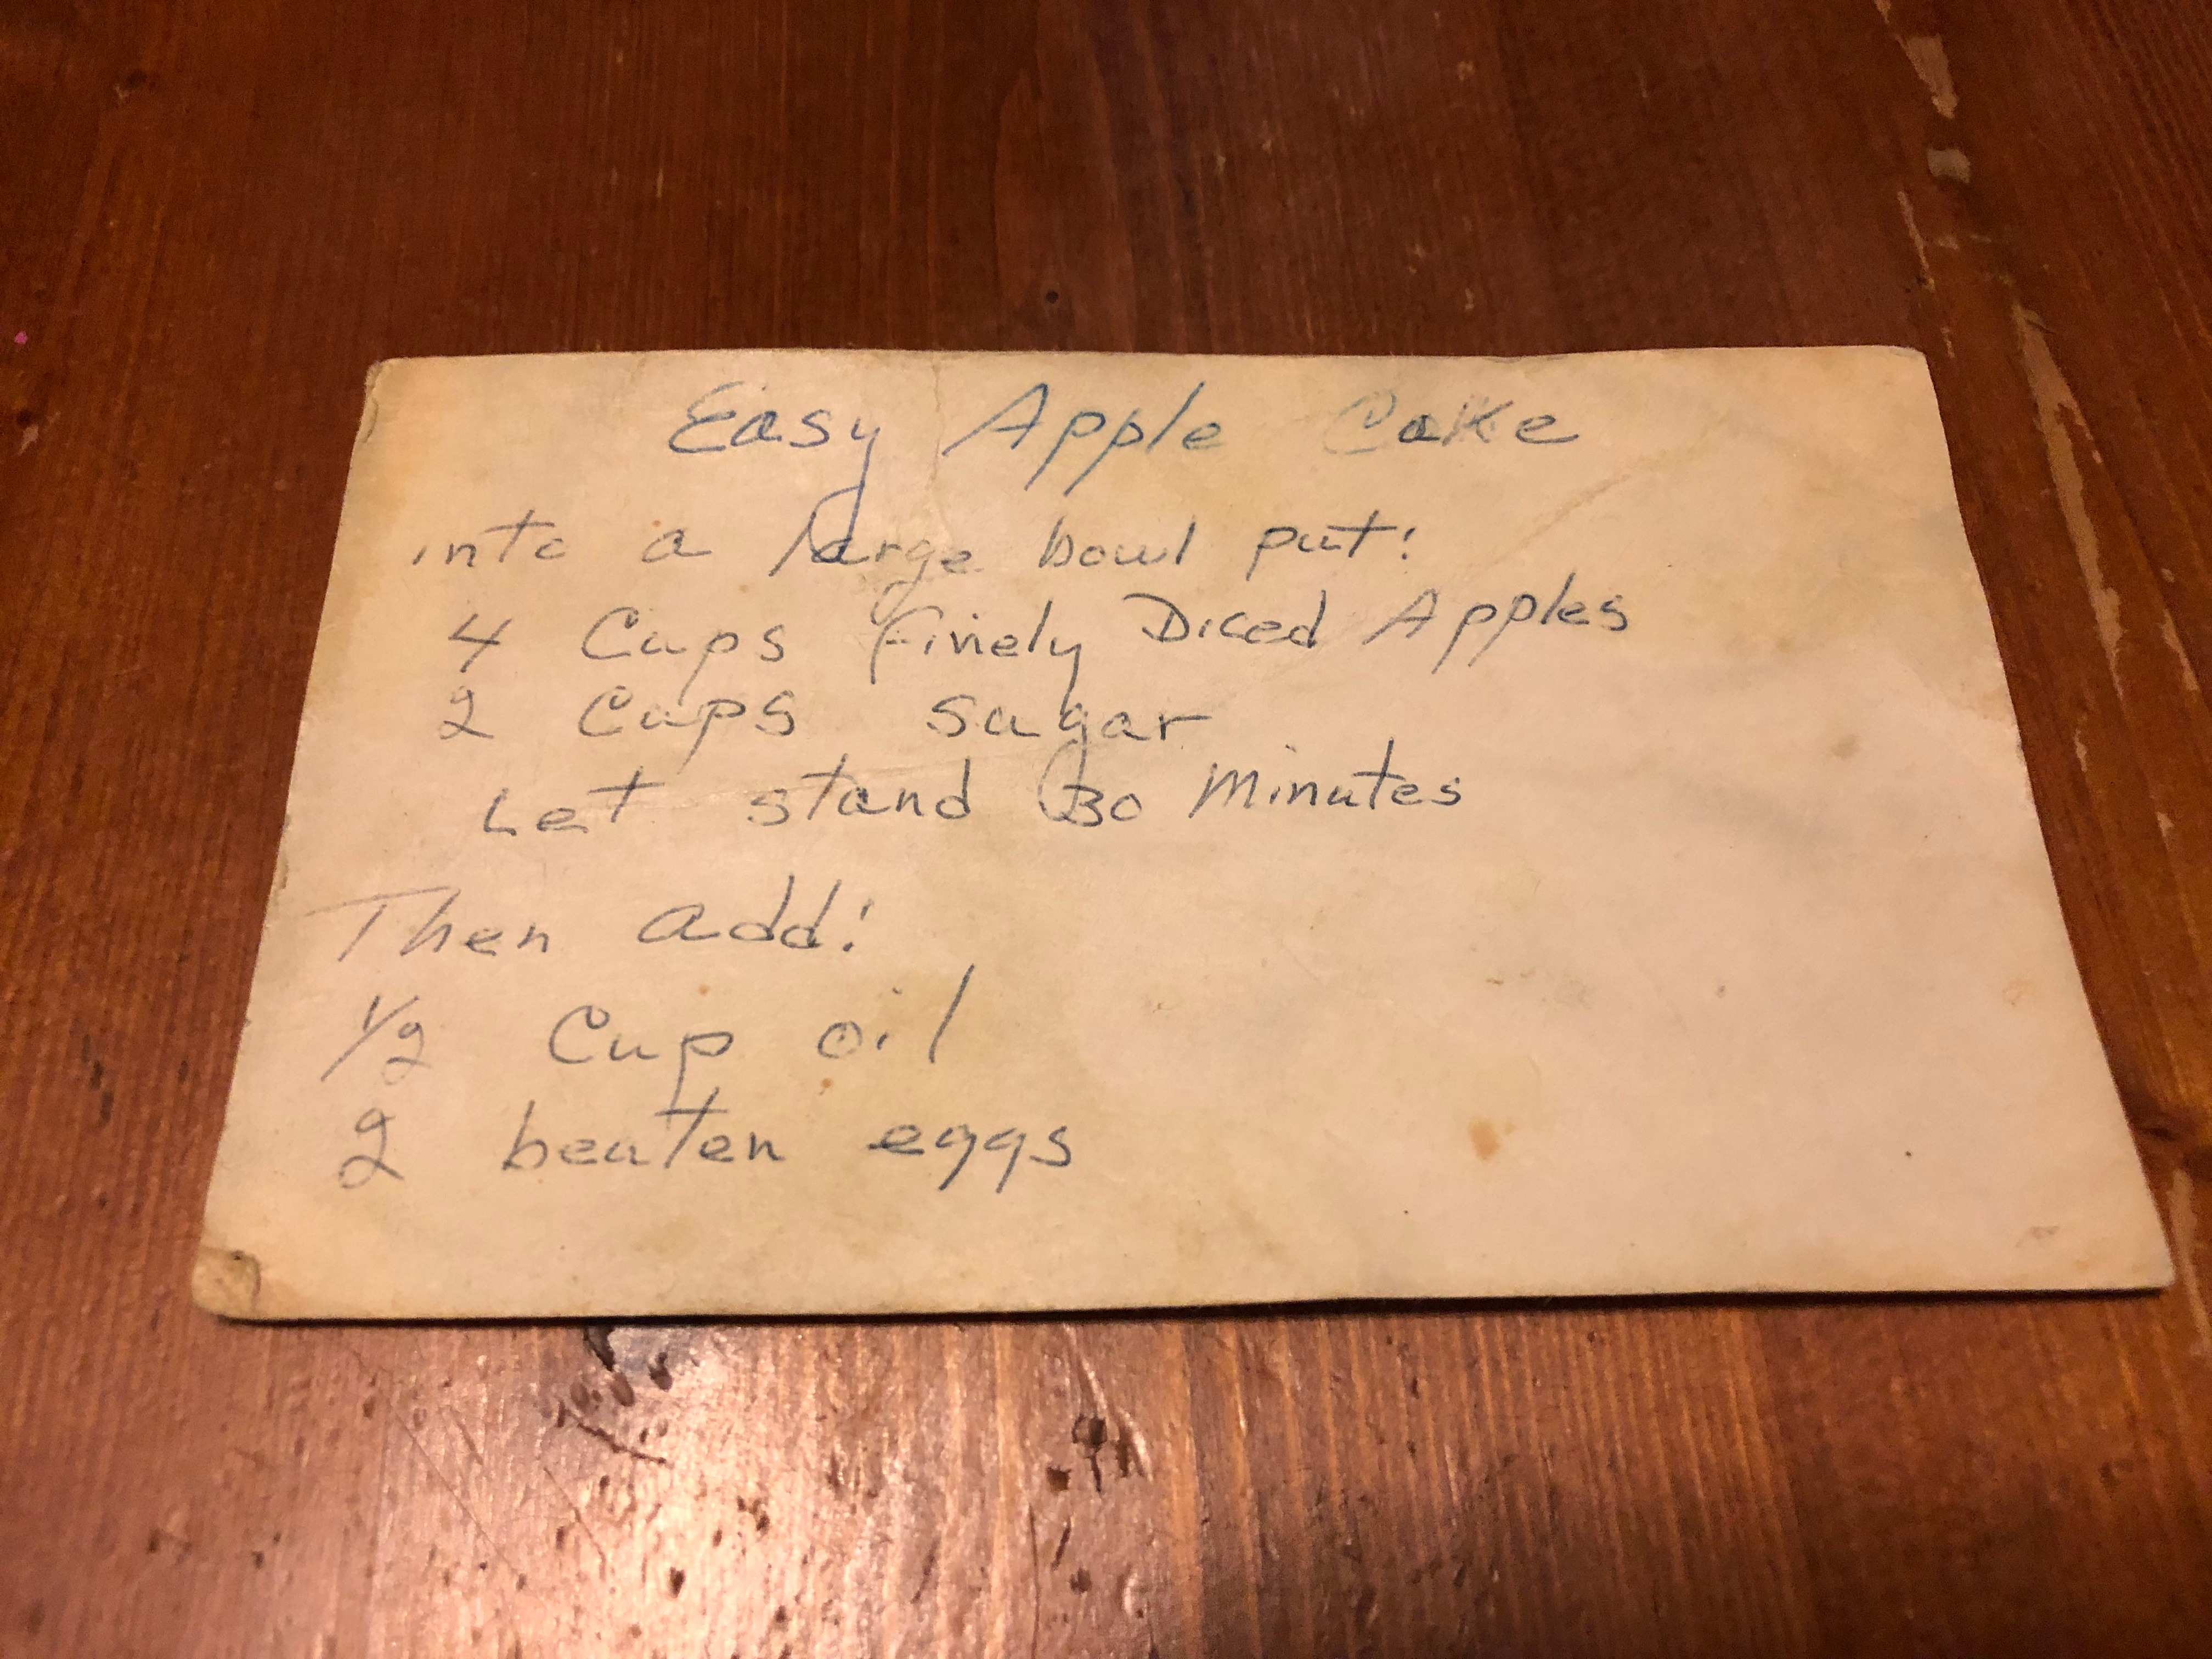 Easy Apple Cake
into a large bowl put:
4 Cups finely Diced Apples
2 Cups sugar
Let stand 30 Minutes
Then add:
1/2 Cup oil
2 beaten eggs